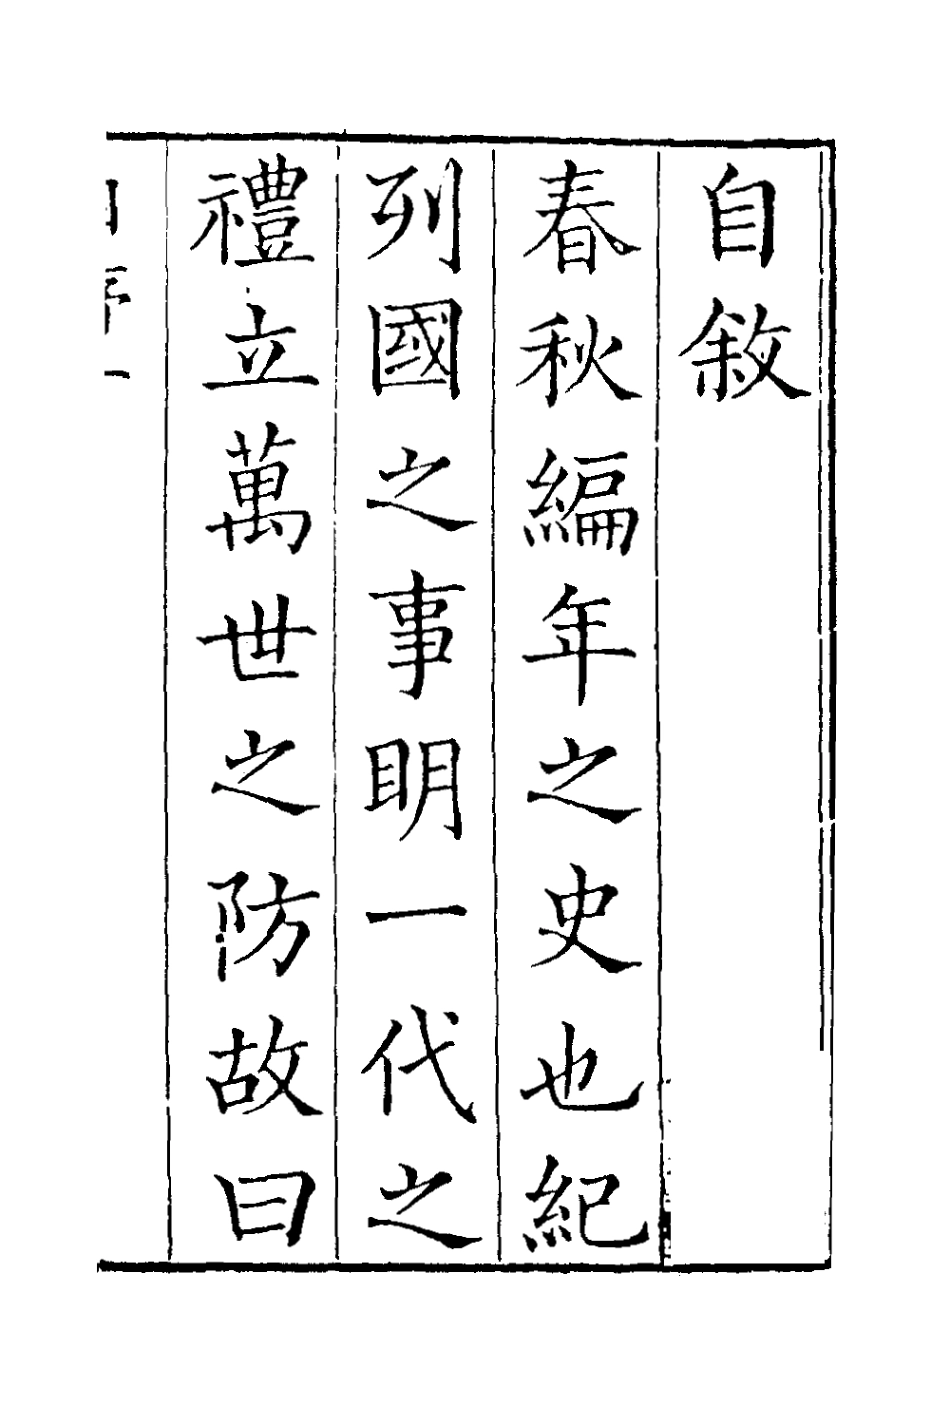 自敘
春秋編年之史也紀
列國之事明一代之
禮立萬世之防故曰
序一